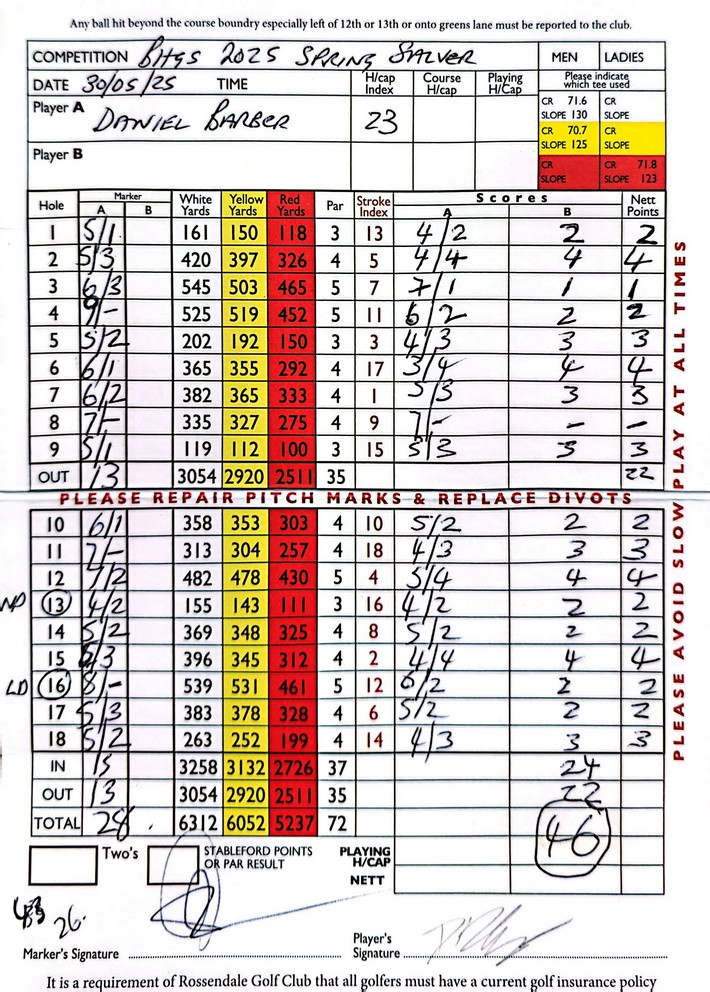 Any ball hit beyond the course boundry especially left of 12th or 13th or onto greens lane must be reported to the club.
COMPETITION BHGS 2025 SPRING SALVER MEN LADIES
DATE 30/05/25 TIME H/cap Index Course H/cap Playing H/Cap Please indicate which tee used
Player A DANIEL BARBER 23 CR 71.6 SLOPE 130 CR SLOPE
CR 70.7 SLOPE 125 CR SLOPE
Player B CR SLOPE CR 71.8 SLOPE 123
Hole Marker A B White Yards Yellow Yards Red Yards Par Stroke Index Scores A B Nett Points
1 5/1 161 150 118 3 13 4/2 2 2
2 5/3 420 397 326 4 5 4/4 4 4
3 6/3 545 503 465 5 7 7/1 1 1
4 9/- 525 519 452 5 11 6/2 2 2
5 5/2 202 192 150 3 3 4/3 3 3
6 6/1 365 355 292 4 17 3/4 4 4
7 6/2 382 365 333 4 1 5/3 3 3
8 7/- 335 327 275 4 9 7/- - -
9 5/1 119 112 100 3 15 5/3 3 3
OUT 13 3054 2920 2511 35 22
PLEASE REPAIR PITCH MARKS & REPLACE DIVOTS
10 6/1 358 353 303 4 10 5/2 2 2
11 7/- 313 304 257 4 18 4/3 3 3
12 7/2 482 478 430 5 4 5/4 4 4
NP 13 4/2 155 143 111 3 16 4/2 2 2
14 5/2 369 348 325 4 8 5/2 2 2
15 5/3 396 345 312 4 2 4/4 4 4
LD 16 8/- 539 531 461 5 12 6/2 2 2
17 5/3 383 378 328 4 6 5/2 2 2
18 5/2 263 252 199 4 14 4/3 3 3
IN 15 3258 3132 2726 37 24
OUT 13 3054 2920 2511 35 22
TOTAL 28 6312 6052 5237 72 46
PLEASE AVOID SLOW PLAY AT ALL TIMES
Two's STABLEFORD POINTS OR PAR RESULT PLAYING H/CAP
NETT
26.
Marker's Signature Player's Signature
It is a requirement of Rossendale Golf Club that all golfers must have a current golf insurance policy